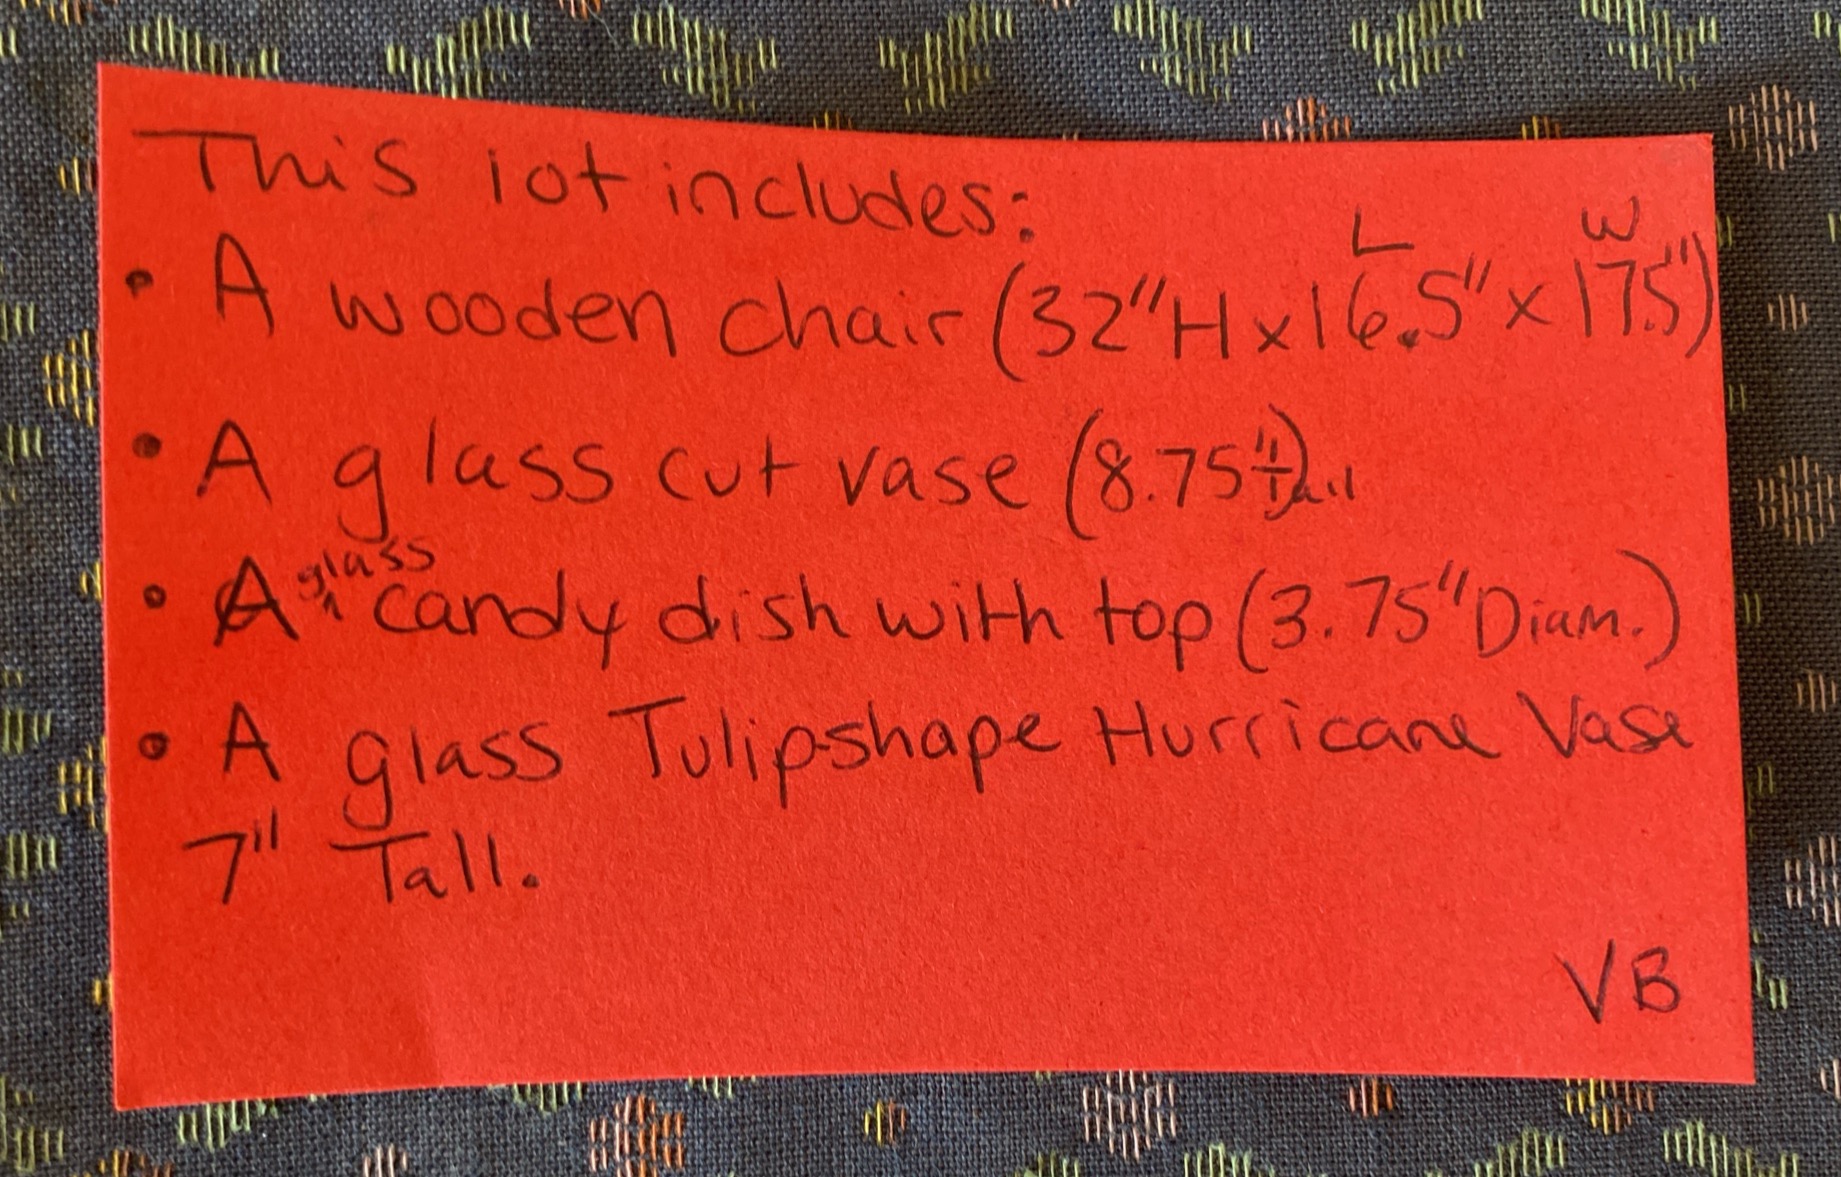 This lot includes:
• A wooden chair (32"H x 16.5" L x 17.5" W)
• A glass cut vase (8.75" Tall)
• A glass candy dish with top (3.75" Diam.)
• A glass Tulipshape Hurricane Vase
7" Tall.
VB